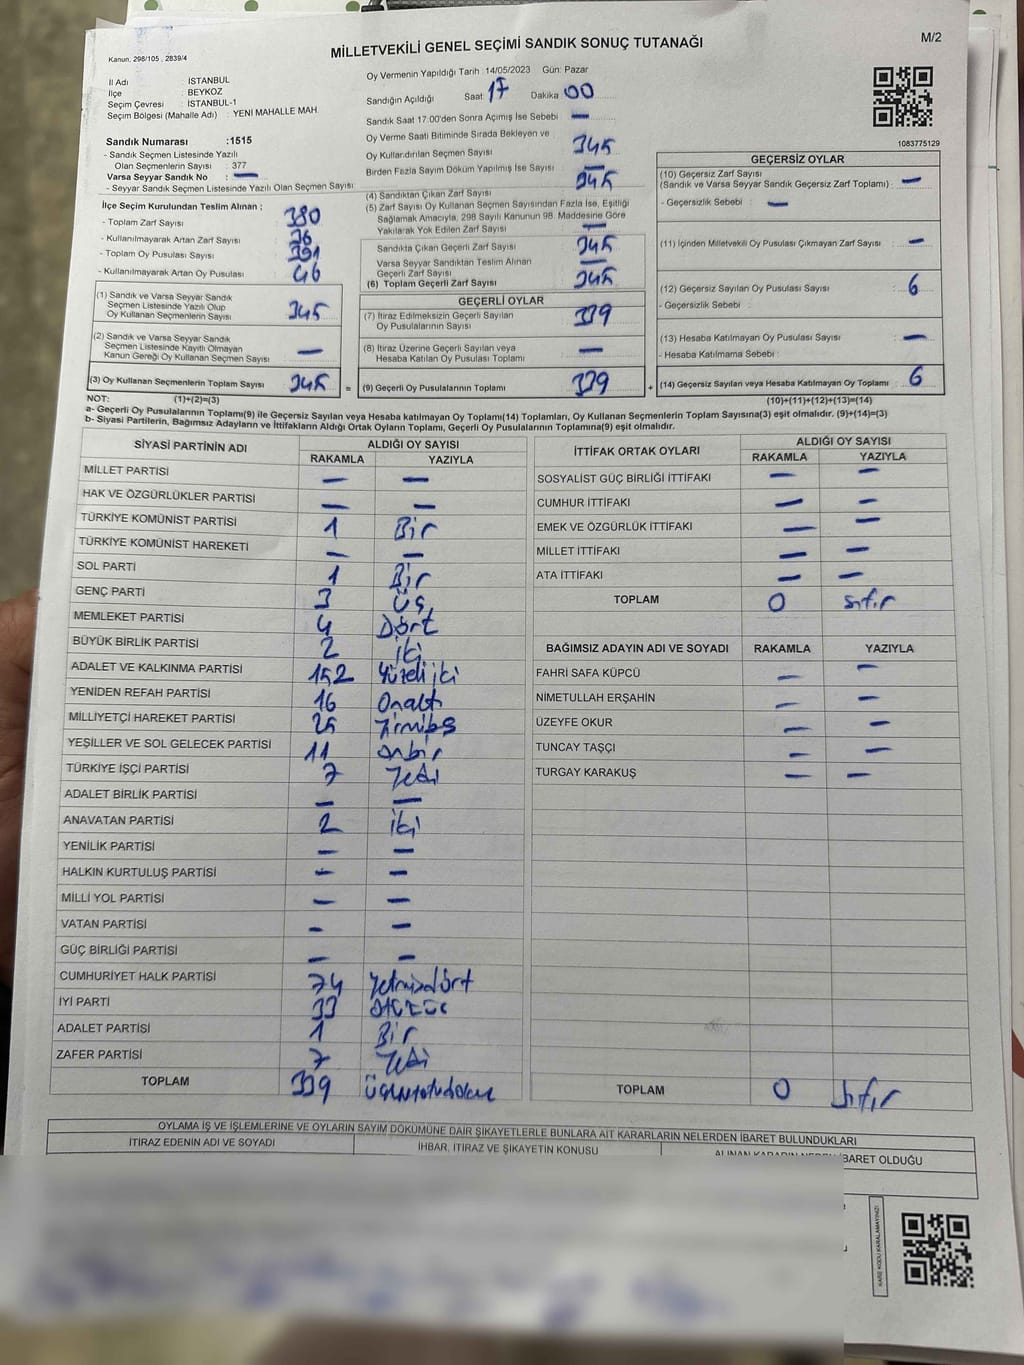 M/2
MİLLETVEKİLİ GENEL SEÇİMİ SANDIK SONUÇ TUTANAĞI
Kanun, 298/105 , 2839/4
İl Adı : İSTANBUL
İlçe : BEYKOZ
Seçim Çevresi : İSTANBUL-1
Seçim Bölgesi (Mahalle Adı) : YENİ MAHALLE MAH.
Sandık Numarası :1515
- Sandık Seçmen Listesinde Yazılı
Olan Seçmenlerin Sayısı : 377
Varsa Seyyar Sandık No : —
- Seyyar Sandık Seçmen Listesinde Yazılı Olan Seçmen Sayısı
İlçe Seçim Kurulundan Teslim Alınan ;
- Toplam Zarf Sayısı 380
- Kullanılmayarak Artan Zarf Sayısı
- Toplam Oy Pusulası Sayısı 391
- Kullanılmayarak Artan Oy Pusulası 46
(1) Sandık ve Varsa Seyyar Sandık
Seçmen Listesinde Yazılı Olup
Oy Kullanan Seçmenlerin Sayısı 345
(2) Sandık ve Varsa Seyyar Sandık
Seçmen Listesinde Kayıtlı Olmayan
Kanun Gereği Oy Kullanan Seçmen Sayısı —
(3) Oy Kullanan Seçmenlerin Toplam Sayısı 345 =
Oy Vermenin Yapıldığı Tarih :14/05/2023 Gün: Pazar
Sandığın Açıldığı Saat 17 Dakika 00
Sandık Saat 17:00'den Sonra Açımış İse Sebebi —
Oy Verme Saati Bitiminde Sırada Bekleyen ve
Oy Kullandırılan Seçmen Sayısı 345
Birden Fazla Sayım Döküm Yapılmış İse Sayısı —
(4) Sandıktan Çıkan Zarf Sayısı 345
(5) Zarf Sayısı Oy Kullanan Seçmen Sayısından Fazla İse, Eşitliği
Sağlamak Amacıyla, 298 Sayılı Kanunun 98. Maddesine Göre
Yakılarak Yok Edilen Zarf Sayısı —
Sandıkta Çıkan Geçerli Zarf Sayısı 345
Varsa Seyyar Sandıktan Teslim Alınan
Geçerli Zarf Sayısı —
(6) Toplam Geçerli Zarf Sayısı 345
GEÇERLİ OYLAR
(7) İtiraz Edilmeksizin Geçerli Sayılan
Oy Pusulalarının Sayısı 339
(8) İtiraz Üzerine Geçerli Sayılan veya
Hesaba Katılan Oy Pusulası Toplamı —
(9) Geçerli Oy Pusulalarının Toplamı 339 +
1083775129
GEÇERSİZ OYLAR
(10) Geçersiz Zarf Sayısı
(Sandık ve Varsa Seyyar Sandık Geçersiz Zarf Toplamı) : —
- Geçersizlik Sebebi : —
(11) İçinden Milletvekili Oy Pusulası Çıkmayan Zarf Sayısı : —
(12) Geçersiz Sayılan Oy Pusulası Sayısı : 6
- Geçersizlik Sebebi :
(13) Hesaba Katılmayan Oy Pusulası Sayısı : —
- Hesaba Katılmama Sebebi :
(14) Geçersiz Sayılan veya Hesaba Katılmayan Oy Toplamı 6
NOT: (1)+(2)=(3) (10)+(11)+(12)+(13)=(14)
a- Geçerli Oy Pusulalarının Toplamı(9) ile Geçersiz Sayılan veya Hesaba katılmayan Oy Toplamı(14) Toplamları, Oy Kullanan Seçmenlerin Toplam Sayısına(3) eşit olmalıdır. (9)+(14)=(3)
b- Siyasi Partilerin, Bağımsız Adayların ve İttifakların Aldığı Ortak Oyların Toplamı, Geçerli Oy Pusulalarının Toplamına(9) eşit olmalıdır.
SİYASİ PARTİNİN ADI ALDIĞI OY SAYISI
RAKAMLA YAZIYLA
MİLLET PARTİSİ — —
HAK VE ÖZGÜRLÜKLER PARTİSİ — —
TÜRKİYE KOMÜNİST PARTİSİ 1 Bir
TÜRKİYE KOMÜNİST HAREKETİ — —
SOL PARTİ 1 Bir
GENÇ PARTİ 3 Üç
MEMLEKET PARTİSİ 4 Dört
BÜYÜK BİRLİK PARTİSİ 2 İki
ADALET VE KALKINMA PARTİSİ 152 Yüzelliiki
YENİDEN REFAH PARTİSİ 16 Onaltı
MİLLİYETÇİ HAREKET PARTİSİ 25 Yirmibeş
YEŞİLLER VE SOL GELECEK PARTİSİ 11 onbir
TÜRKİYE İŞÇİ PARTİSİ 7 Yedi
ADALET BİRLİK PARTİSİ — —
ANAVATAN PARTİSİ 2 İki
YENİLİK PARTİSİ — —
HALKIN KURTULUŞ PARTİSİ — —
MİLLİ YOL PARTİSİ — —
VATAN PARTİSİ — —
GÜÇ BİRLİĞİ PARTİSİ — —
CUMHURİYET HALK PARTİSİ 74 Yetmişdört
İYİ PARTİ 33 otuzüç
ADALET PARTİSİ 1 Bir
ZAFER PARTİSİ 7 Yedi
TOPLAM 339
İTTİFAK ORTAK OYLARI ALDIĞI OY SAYISI
RAKAMLA YAZIYLA
SOSYALİST GÜÇ BİRLİĞİ İTTİFAKI — —
CUMHUR İTTİFAKI — —
EMEK VE ÖZGÜRLÜK İTTİFAKI — —
MİLLET İTTİFAKI — —
ATA İTTİFAKI — —
TOPLAM 0 sıfır
BAĞIMSIZ ADAYIN ADI VE SOYADI RAKAMLA YAZIYLA
FAHRİ SAFA KÜPCÜ — —
NİMETULLAH ERŞAHİN — —
ÜZEYFE OKUR — —
TUNCAY TAŞÇI — —
TURGAY KARAKUŞ — —
TOPLAM 0 sıfır
OYLAMA İŞ VE İŞLEMLERİNE VE OYLARIN SAYIM DÖKÜMÜNE DAİR ŞİKAYETLERLE BUNLARA AİT KARARLARIN NELERDEN İBARET BULUNDUKLARI
İTİRAZ EDENİN ADI VE SOYADI İHBAR, İTİRAZ VE ŞİKAYETİN KONUSU İBARET OLDUĞU
KARE KODU KARALAMAYINIZ!